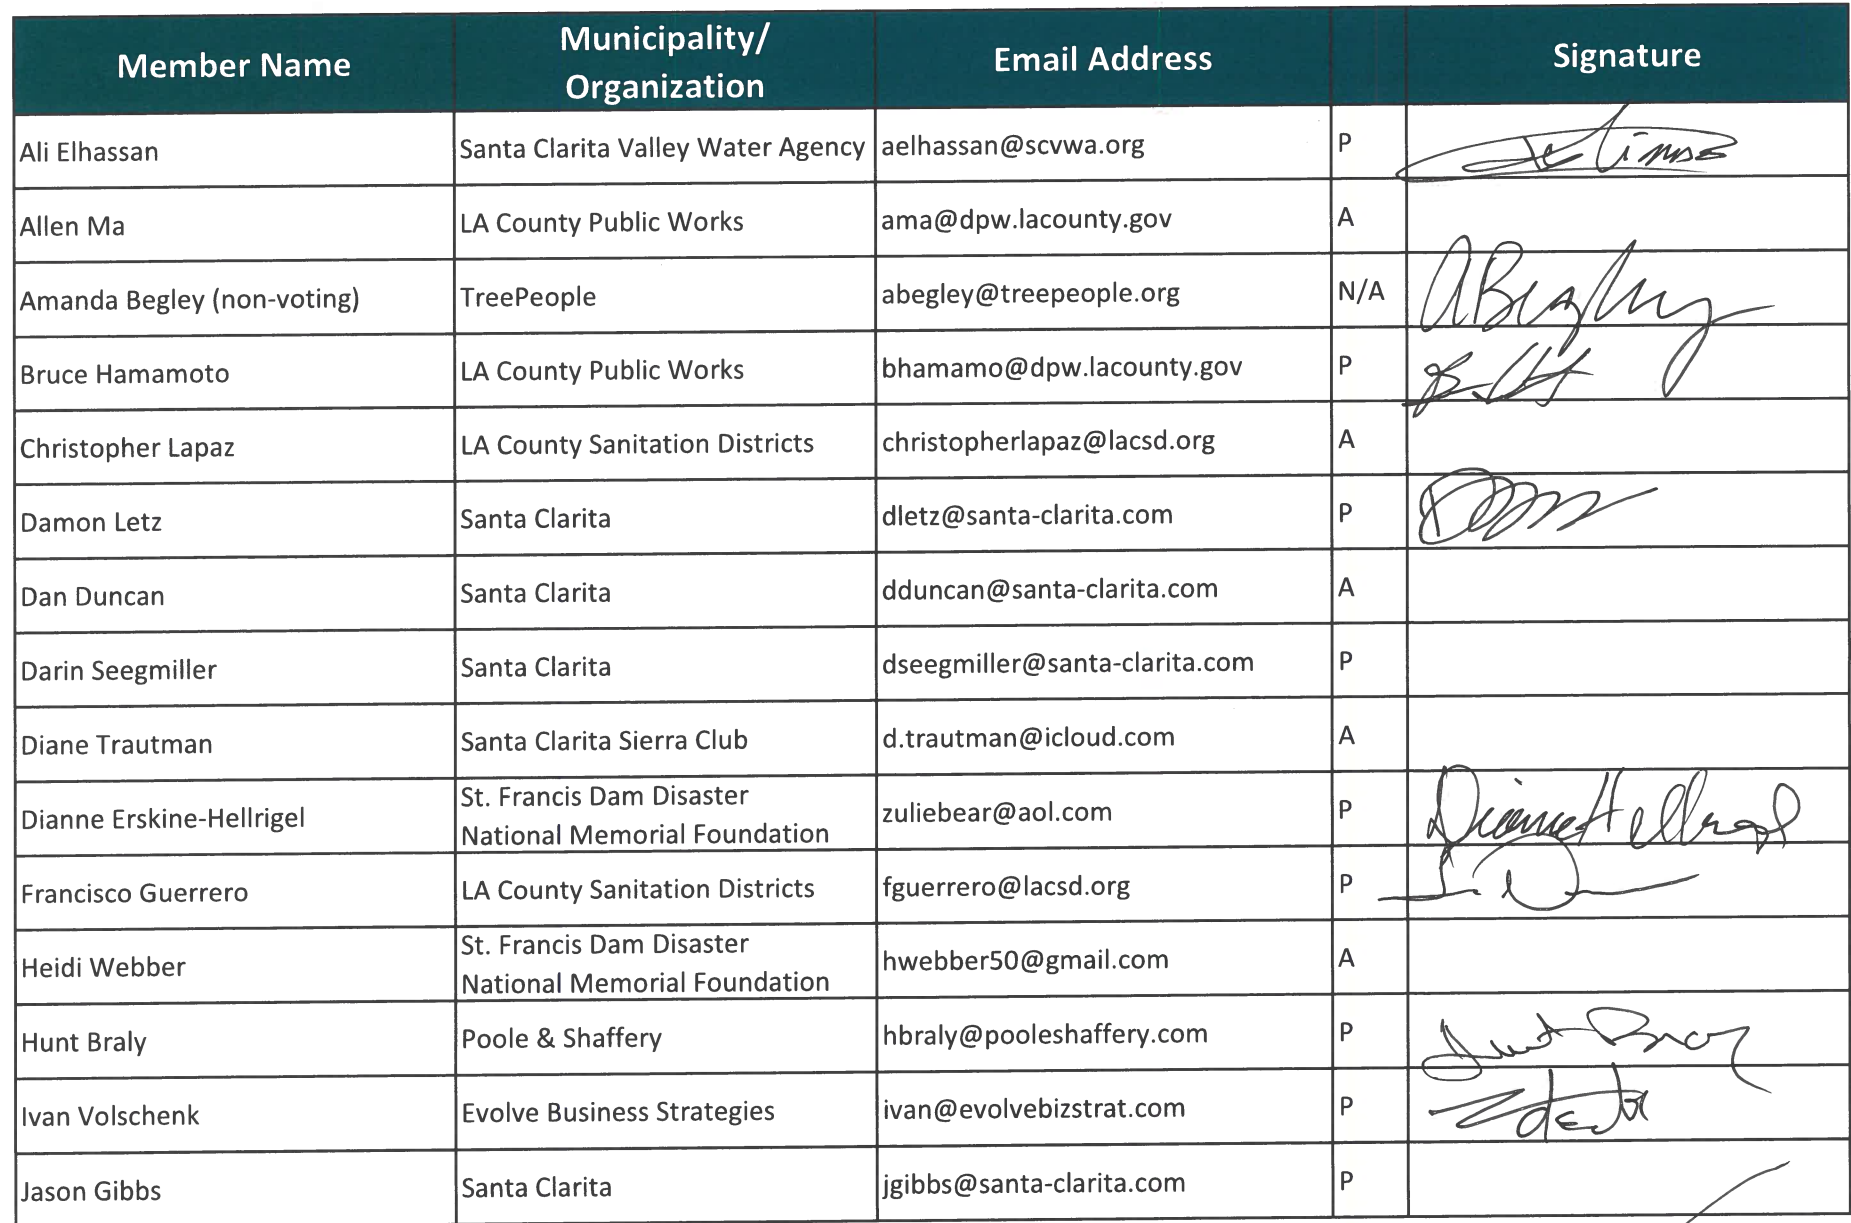 Member Name Municipality/ Organization Email Address Signature
Ali Elhassan Santa Clarita Valley Water Agency aelhassan@scvwa.org P
Allen Ma LA County Public Works ama@dpw.lacounty.gov A
Amanda Begley (non-voting) TreePeople abegley@treepeople.org N/A ABegley
Bruce Hamamoto LA County Public Works bhamamo@dpw.lacounty.gov P
Christopher Lapaz LA County Sanitation Districts christopherlapaz@lacsd.org A
Damon Letz Santa Clarita dletz@santa-clarita.com P
Dan Duncan Santa Clarita dduncan@santa-clarita.com A
Darin Seegmiller Santa Clarita dseegmiller@santa-clarita.com P
Diane Trautman Santa Clarita Sierra Club d.trautman@icloud.com A
Dianne Erskine-Hellrigel St. Francis Dam Disaster National Memorial Foundation zuliebear@aol.com P Dianne Hellrigel
Francisco Guerrero LA County Sanitation Districts fguerrero@lacsd.org P
Heidi Webber St. Francis Dam Disaster National Memorial Foundation hwebber50@gmail.com A
Hunt Braly Poole & Shaffery hbraly@pooleshaffery.com P Hunt Braly
Ivan Volschenk Evolve Business Strategies ivan@evolvebizstrat.com P
Jason Gibbs Santa Clarita jgibbs@santa-clarita.com P